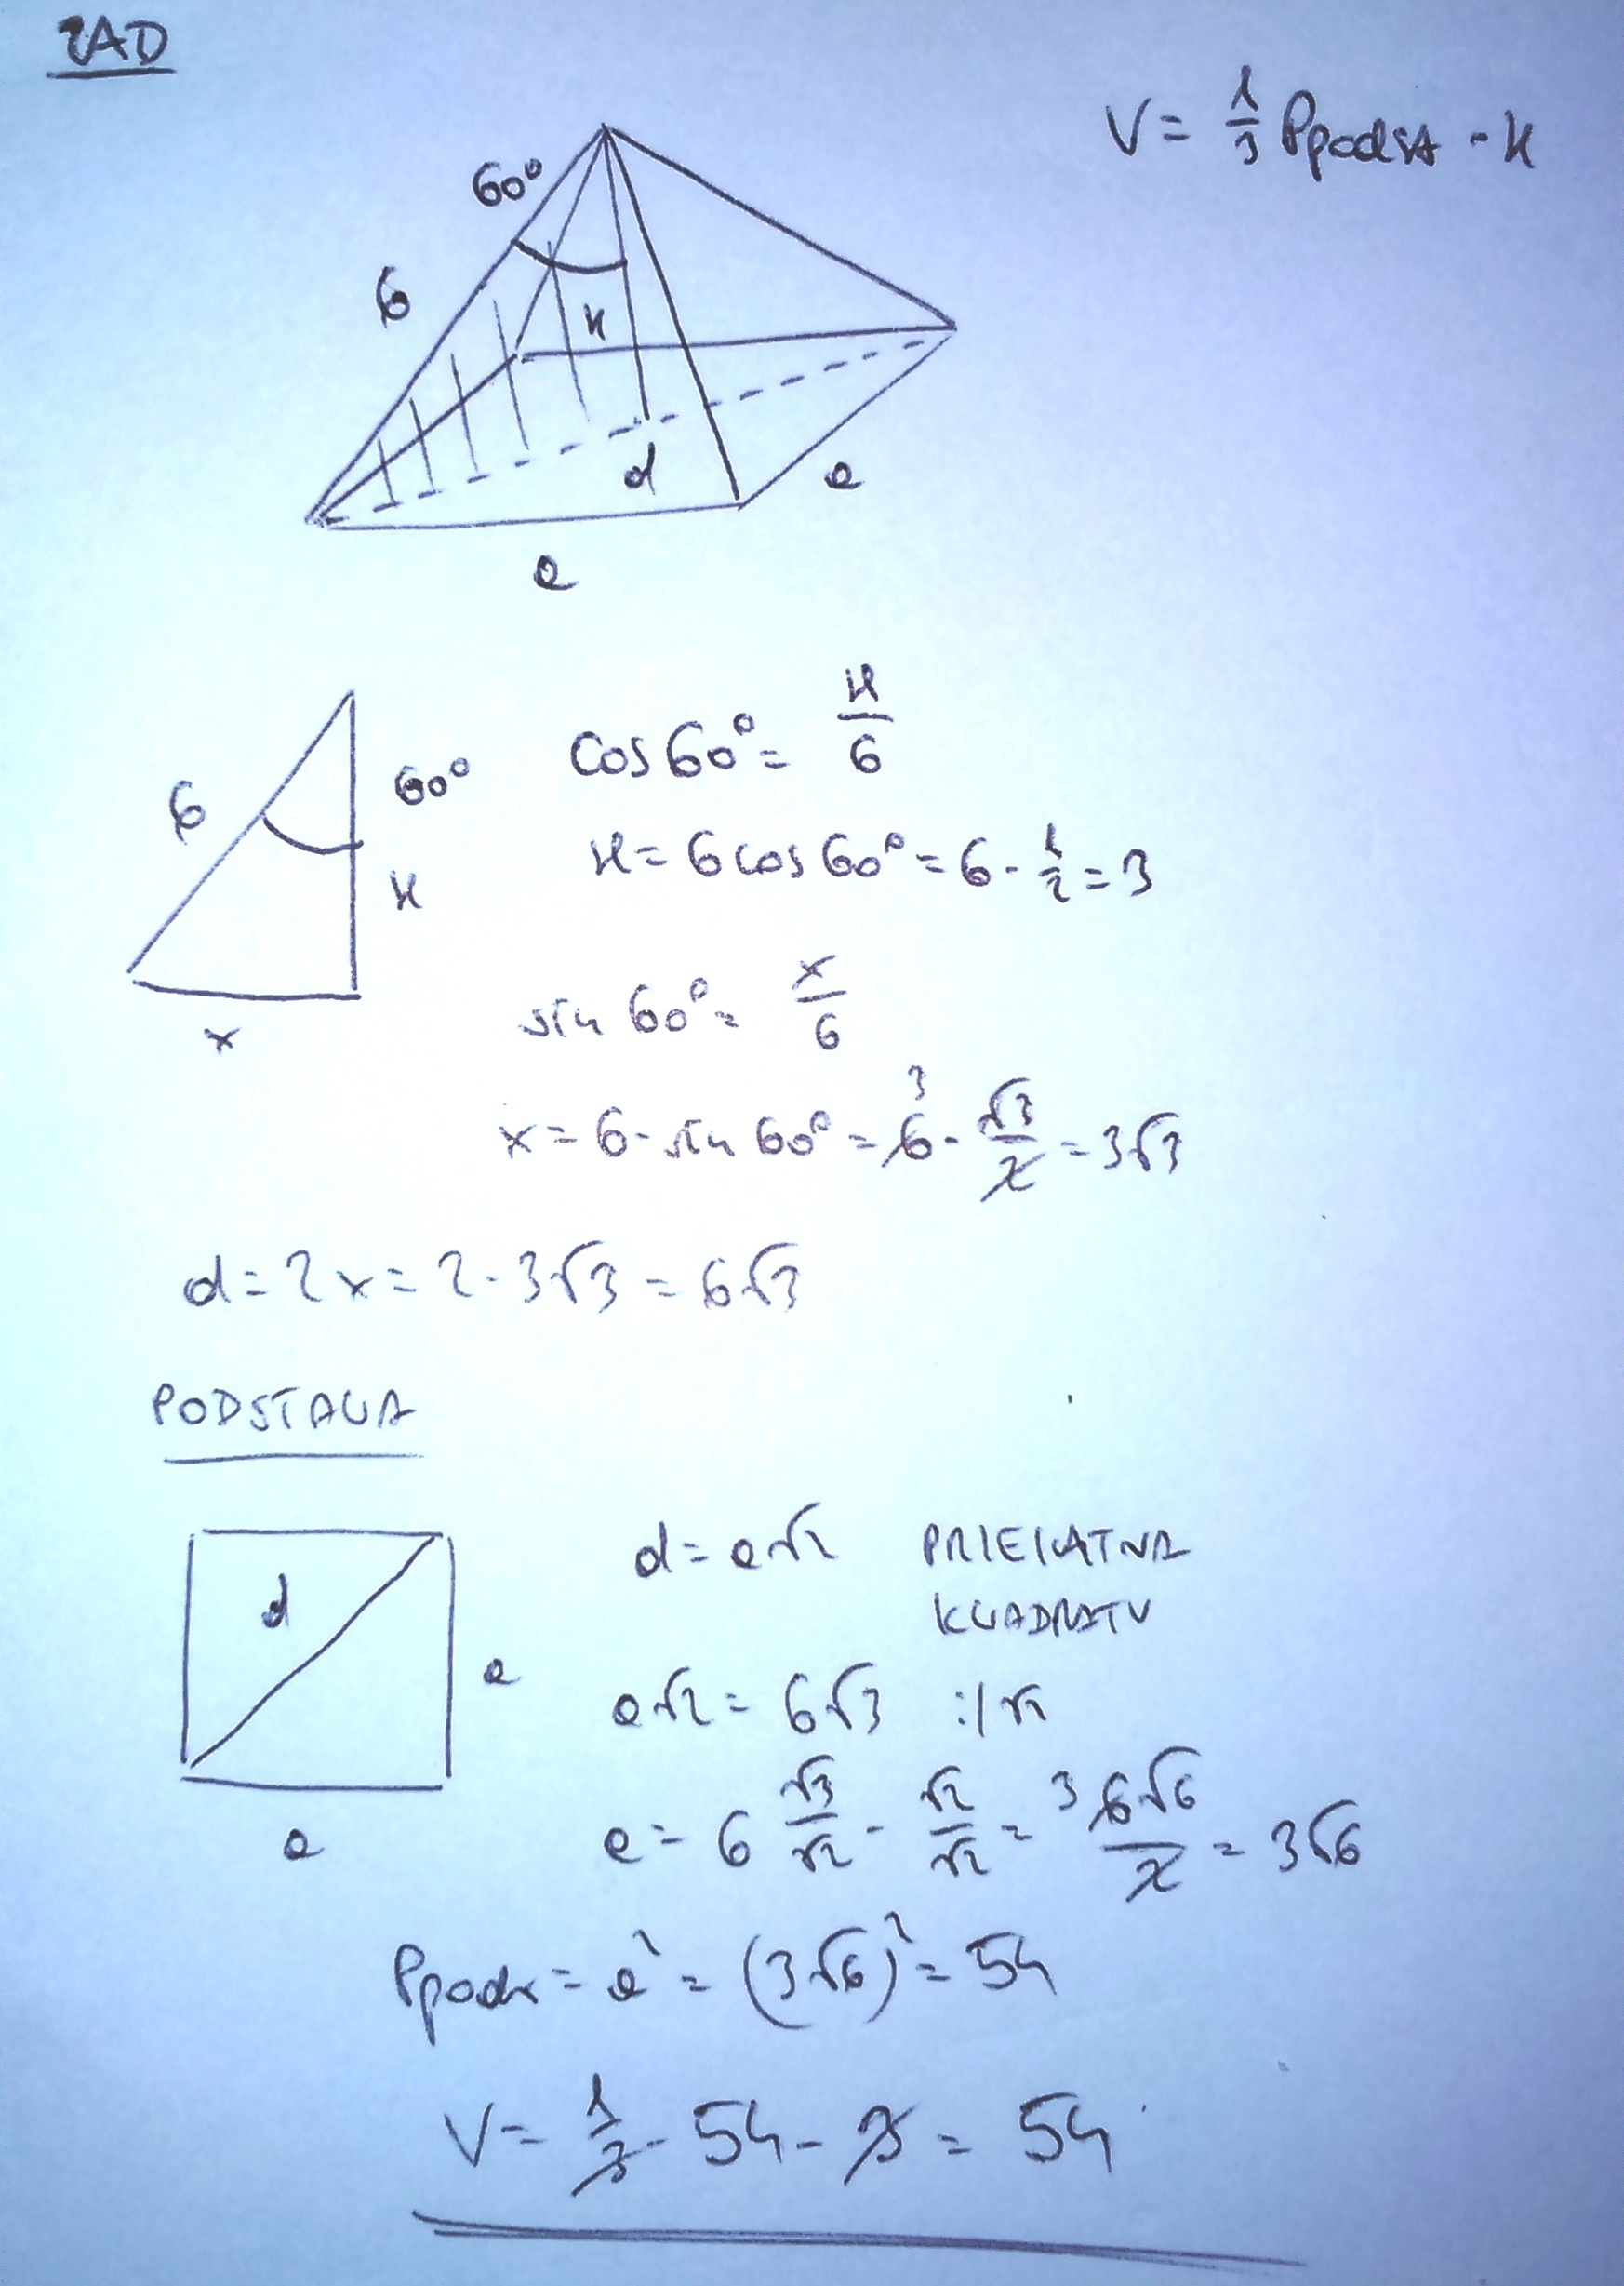 ZAD
V = 1/3 Ppodst · H
60°
6
H
d
a
a
6
60°
H
x
cos 60° = H/6
H = 6 cos 60° = 6 · 1/2 = 3
sin 60° = x/6
x = 6 · sin 60° = 6 3 · √3/2 = 3√3
d = 2x = 2 · 3√3 = 6√3
PODSTAWA
d
a
a
d = a√2 PRZEKĄTNA
KWADRATU
a√2 = 6√3 :/√2
a = 6 √3/√2 · √2/√2 = 3 6√6/2 = 3√6
Ppods = a² = (3√6)² = 54
V = 1/3 · 54 · 3 = 54